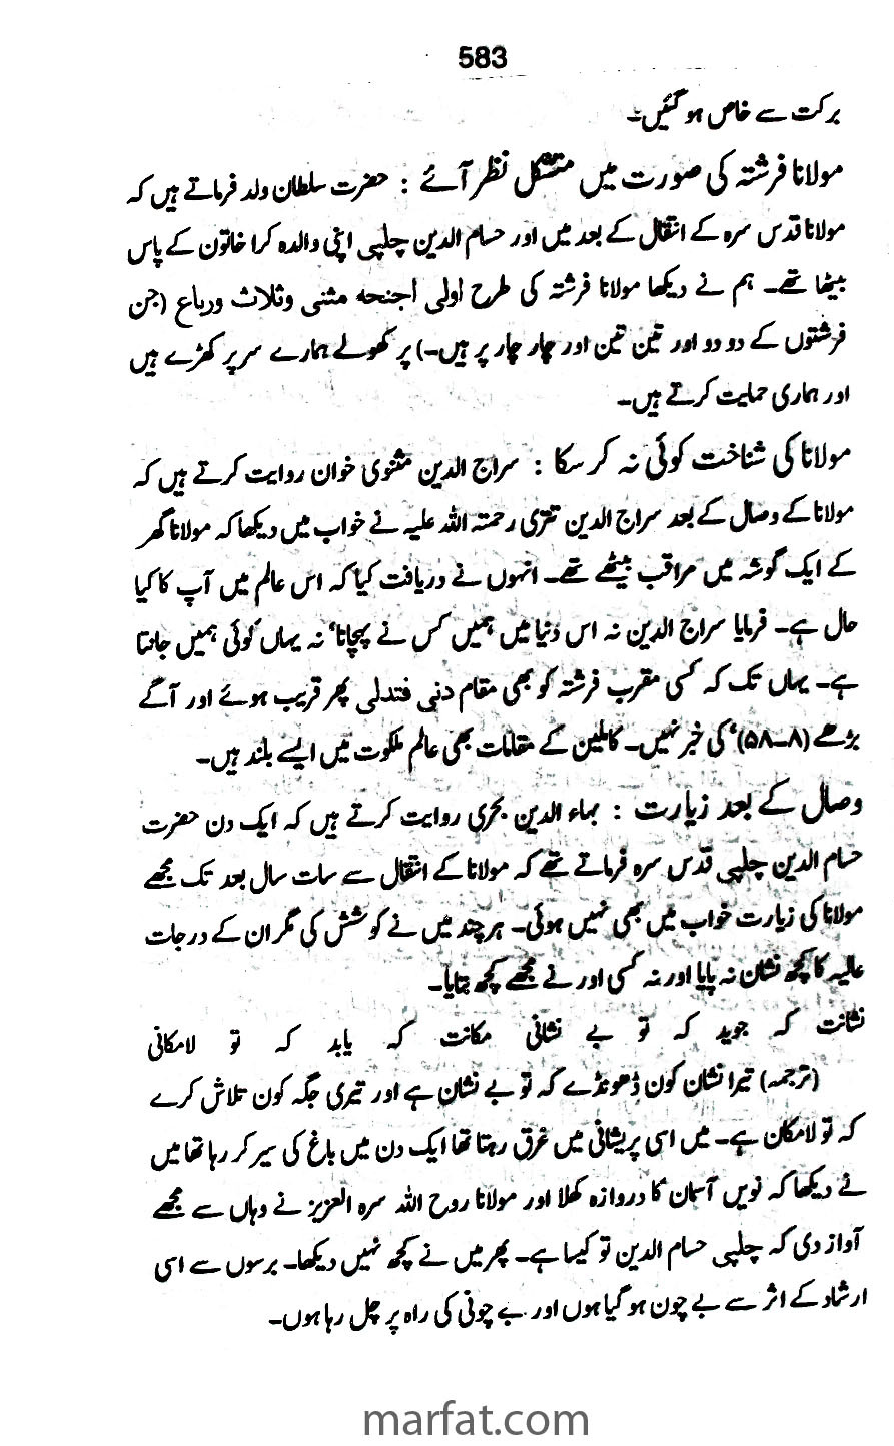 583
برکت سے خاص ہو گئیں۔
مولانا فرشتہ کی صورت میں متشکل نظر آئے : حضرت سلطان ولد فرماتے ہیں کہ
مولانا قدس سرہ کے انتقال کے بعد میں اور حسام الدین چلپی اپنی والدہ کرا خاتون کے پاس
بیٹھا تھے۔ ہم نے دیکھا مولانا فرشتہ کی طرح اولی اجنحہ مثنی وثلاث ورباع (جن
فرشتوں کے دو دو اور تین تین اور چار چار پر ہیں۔) پر کھولے ہمارے سر پر کھڑے ہیں
اور ہماری حمایت کرتے ہیں۔
مولانا کی شناخت کوئی نہ کر سکا : سراج الدین مثنوی خوان روایت کرتے ہیں کہ
مولانا کے وصال کے بعد سراج الدین تتری رحمتہ اللہ علیہ نے خواب میں دیکھا کہ مولانا گھر
کے ایک گوشہ میں مراقب بیٹھے تھے۔ انہوں نے دریافت کیا کہ اس عالم میں آپ کا کیا
حال ہے۔ فرمایا سراج الدین نہ اس دنیا میں ہمیں کس نے پہچانا، نہ یہاں کوئی ہمیں جانتا
ہے۔ یہاں تک کہ کسی مقرب فرشتہ کو بھی مقام دنی فتدلی پھر قریب ہوئے اور آگے
بڑھے (۸۔۵۸)، کی خبر نہیں۔ کاملین کے مقامات بھی عالم ملکوت میں ایسے بلند ہیں۔
وصال کے بعد زیارت : بہاء الدین بحری روایت کرتے ہیں کہ ایک دن حضرت
حسام الدین چلپی قدس سرہ فرماتے تھے کہ مولانا کے انتقال سے سات سال بعد تک مجھے
مولانا کی زیارت خواب میں بھی نہیں ہوئی۔ ہر چند میں نے کوشش کی مگر ان کے درجات
عالیہ کا کچھ نشان نہ پایا اور نہ کسی اور نے مجھے کچھ بتایا۔
نشانت کہ جوید کہ تو بے نشانی مکانت کہ یابد کہ تو لامکانی
(ترجمہ) تیرا نشان کون ڈھونڈے کہ تو بے نشان ہے اور تیری جگہ کون تلاش کرے
کہ تو لامکان ہے۔ میں اسی پریشانی میں غرق رہتا تھا ایک دن میں باغ کی سیر کر رہا تھا میں
نے دیکھا کہ نویں آسمان کا دروازہ کھلا اور مولانا روح اللہ سرہ العزیز نے وہاں سے مجھے
آواز دی کہ چلپی حسام الدین تو کیسا ہے۔ پھر میں نے کچھ نہیں دیکھا۔ برسوں سے اسی
ارشاد کے اثر سے بے چون ہو گیا ہوں اور بے چونی کی راہ پر چل رہا ہوں۔
marfat.com